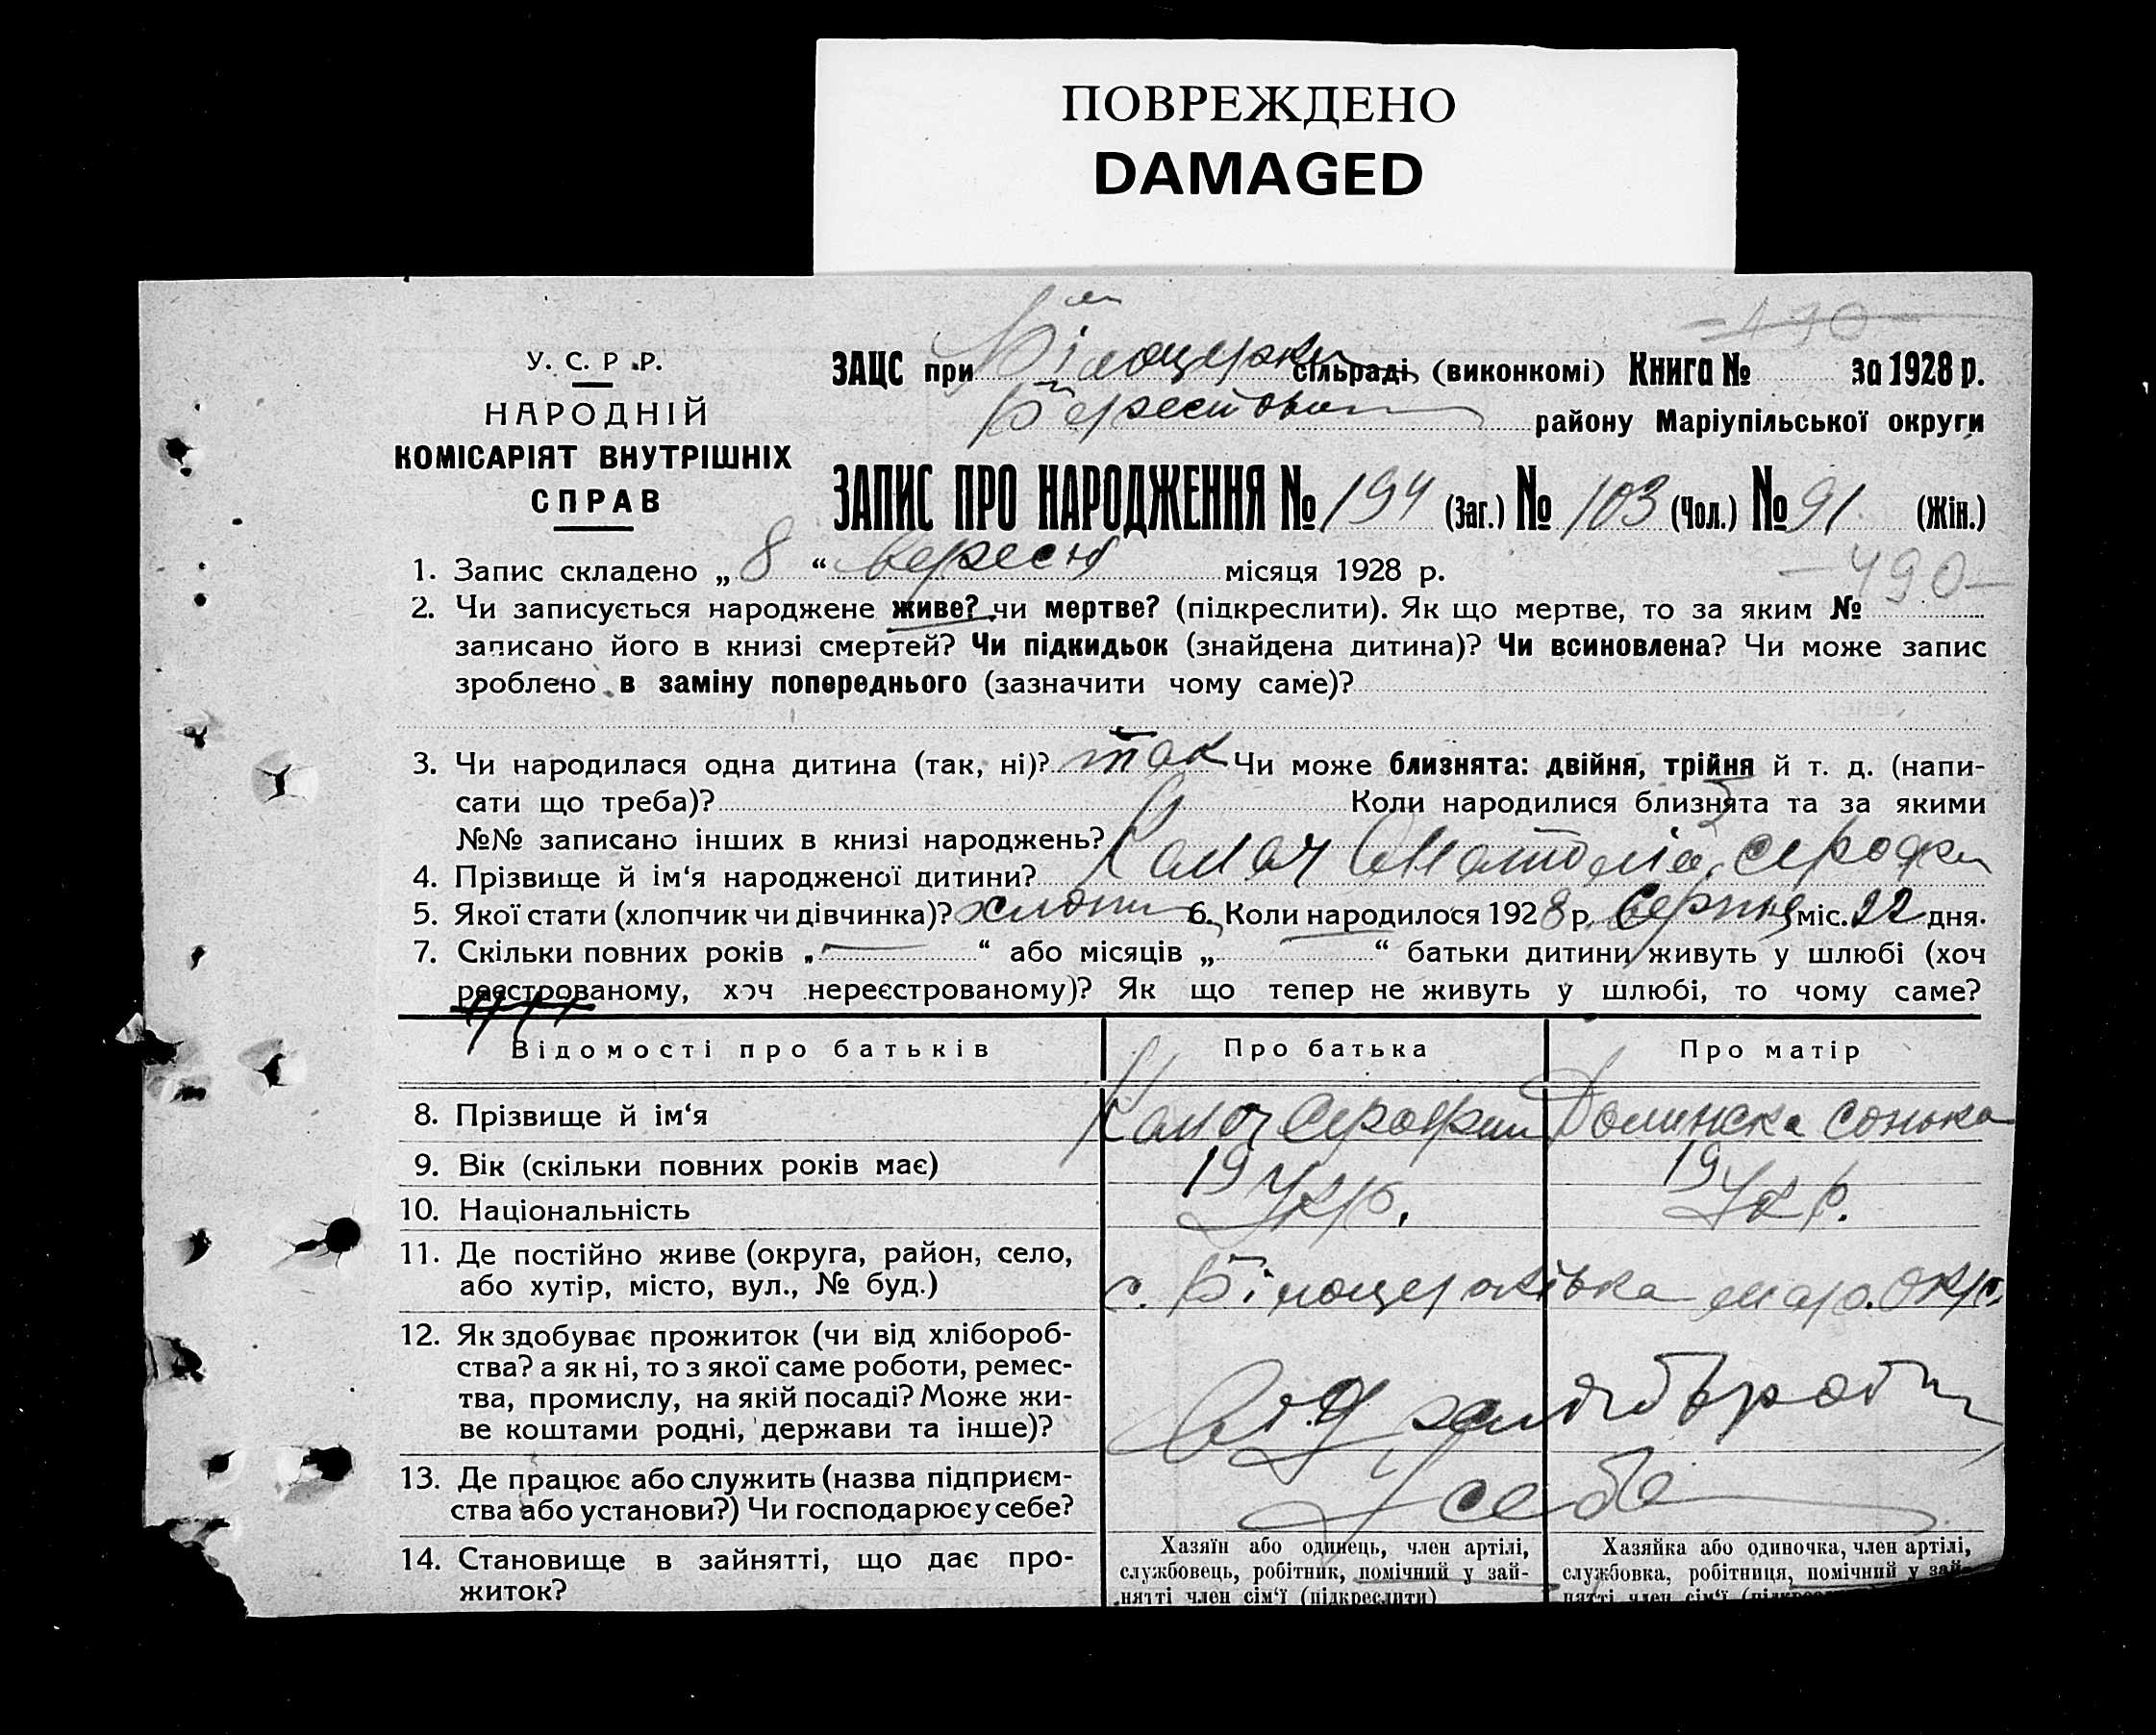 ПОВРЕЖДЕНО
DAMAGED
- 490 -
У. С. Р Р.
НАРОДНІЙ
КОМІСАРІЯТ ВНУТРІШНІХ
СПРАВ
ЗАЦС при Білоцерків сільраді, (виконкомі) Книга № за 1928 р.
Берестован району Маріупільської округи
ЗАПИС ПРО НАРОДЖЕННЯ № 194 (Заг.) № 103 (Чол.) № 91 (Жін.)
1. Запис складено „ 8 “ вересня місяця 1928 р.
- 490 -
2. Чи записується народжене живе? чи мертве? (підкреслити). Як що мертве, то за яким №
записано його в книзі смертей? Чи підкидьок (знайдена дитина)? Чи всиновлена? Чи може запис
зроблено в заміну попереднього (зазначити чому саме)?
3. Чи народилася одна дитина (так, ні)? так Чи може близнята: двійня, трійня й т. д. (напи-
сати що треба)? Коли народилися близнята та за якими
№№ записано інших в книзі народжень?
4. Прізвище й ім‘я народженої дитини? Камач Анатолій
5. Якої стати (хлопчик чи дівчинка)? хлопч 6. Коли народилося 1928 р. Серпня міс. 22 дня.
7. Скільки повних років „ — “ або місяців „ — “ батьки дитини живуть у шлюбі (хоч
реєстрованому, хоч нереєстрованому)? Як що тепер не живуть у шлюбі, то чому саме?
Відомості про батьків Про батька Про матір
8. Прізвище й ім‘я Камач Серафим Долинска Сонька
9. Вік (скільки повних років має) 19 19
10. Національність Укр. Укр.
11. Де постійно живе (округа, район, село,
або хутір, місто, вул., № буд.) с. Білоцерківка мар. окр.
12. Як здобуває прожиток (чи від хлібороб-
ства? а як ні, то з якої саме роботи, ремес-
тва, промислу, на якій посаді? Може жи-
ве коштами родні, держави та інше)? Від
13. Де працює або служить (назва підприєм-
ства або установи?) Чи господарює у себе? У себе
14. Становище в зайнятті, що дає про-
житок?
Хазяїн або одинець, член артілі,
службовець, робітник, помічний у зай-
нятті член сім‘ї (підкреслити)
Хазяйка або одиночка, член артілі,
службовка, робітниця, помічний у зай-
нятті член сім‘ї